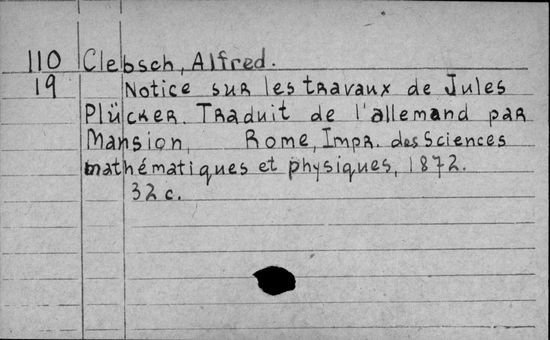 110 Clebsch, Alfred.
19 Notice sur les travaux de Jules
Plücker. Traduit de l'allemand par
Mansion, Rome, Impr. des Sciences
mathématiques et physiques, 1872.
32 c.